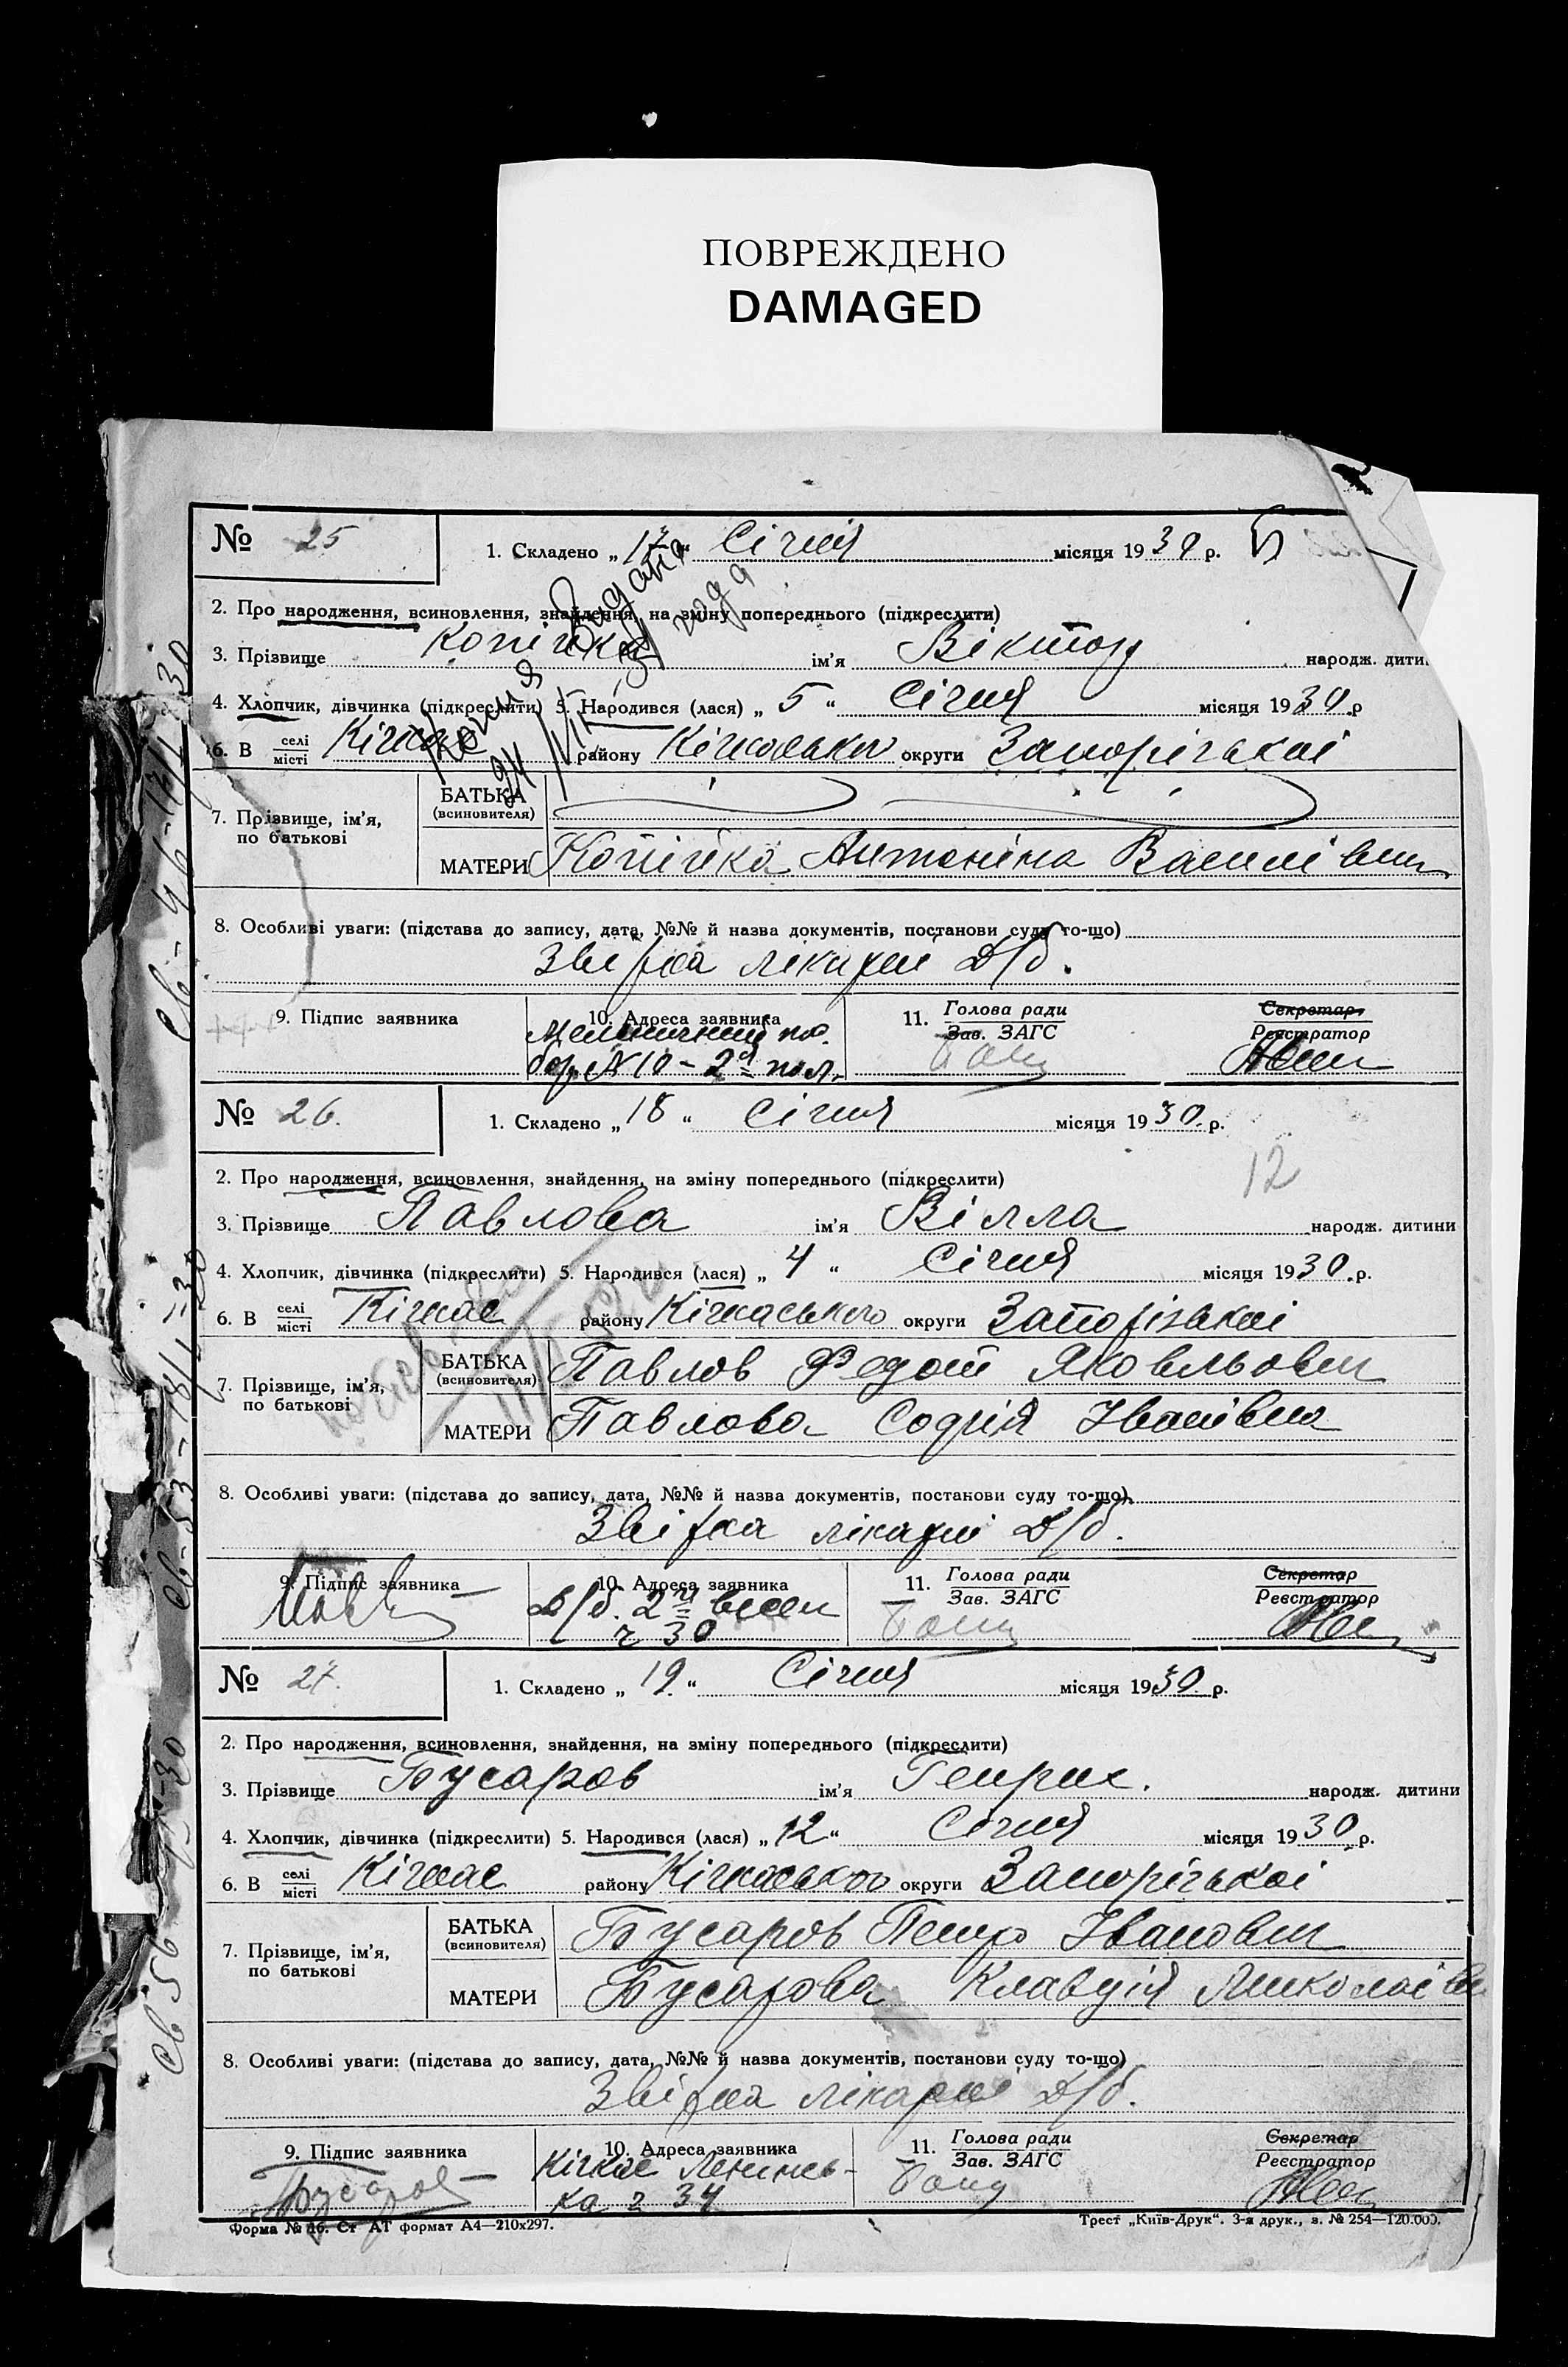 ПОВРЕЖДЕНО
DAMAGED
№ 25
1. Складено „ 17 “ Січня місяця 1930 р.
2. Про народження, всиновлення, знайдення, на зміну попереднього (підкреслити)
3. Прізвище Копійка ім’я Віктор народж. дити
4. Хлопчик, дівчинка (підкреслити) 5. Народився (лася) „ 5 “ Січня місяця 1930 р
6. В селі місті Кічкас району Кічкаського округи Запорізької
7. Прізвище, ім’я, по батькові
БАТЬКА (всиновителя)
МАТЕРИ Копійка Антоніна Василівна
8. Особливі уваги: (підстава до запису, дата, №№ й назва документів, постанови суду то-що)
Звірка лікарні Д/б.
9. Підпис заявника 10. Адреса заявника 11. Голова ради Зав. ЗАГС Секретар Реєстратор
бар N 10 – 2й пол.
Копія видана
№ 26.
1. Складено „ 18 “ Січня місяця 1930. р.
12
2. Про народження, всиновлення, знайдення, на зміну попереднього (підкреслити)
3. Прізвище Павлова ім’я Вілла народж. дитини
4. Хлопчик, дівчинка (підкреслити) 5. Народився (лася) „ 4 “ Січня місяця 1930. р.
6. В селі місті Кічкас району Кічкаського округи Запорізької
7. Прізвище, ім’я, по батькові
БАТЬКА (всиновителя) Павлов Федот Яковльович
МАТЕРИ Павлова Софія Іванівна
8. Особливі уваги: (підстава до запису, дата, №№ й назва документів, постанови суду то-що)
Звірка лікарні Д/б.
9. Підпис заявника 10. Адреса заявника 11. Голова ради Зав. ЗАГС Секретар Реєстратор
Д/б. 2й
ч 30
№ 27.
1. Складено „ 19. “ Січня місяця 1930. р.
2. Про народження, всиновлення, знайдення, на зміну попереднього (підкреслити)
3. Прізвище Бусаров ім’я Генрих. народж. дитини
4. Хлопчик, дівчинка (підкреслити) 5. Народився (лася) „ 12 “ Січня місяця 1930 р.
6. В селі місті Кічкас району Кічкаського округи Запорізької
7. Прізвище, ім’я, по батькові
БАТЬКА (всиновителя) Бусаров Петро Іванович
МАТЕРИ Бусарова Клавдія Миколаівн
8. Особливі уваги: (підстава до запису, дата, №№ й назва документів, постанови суду то-що)
Звірка лікарні Д/б.
9. Підпис заявника 10. Адреса заявника 11. Голова ради Зав. ЗАГС Секретар Реєстратор
Бусаров Кічкас Ленинсь-
ка ч 34
Форма № 16. Ст АТ формат А4—210х297.
Трест „Київ-Друк“. 3-я друк., з. № 254—120.000.